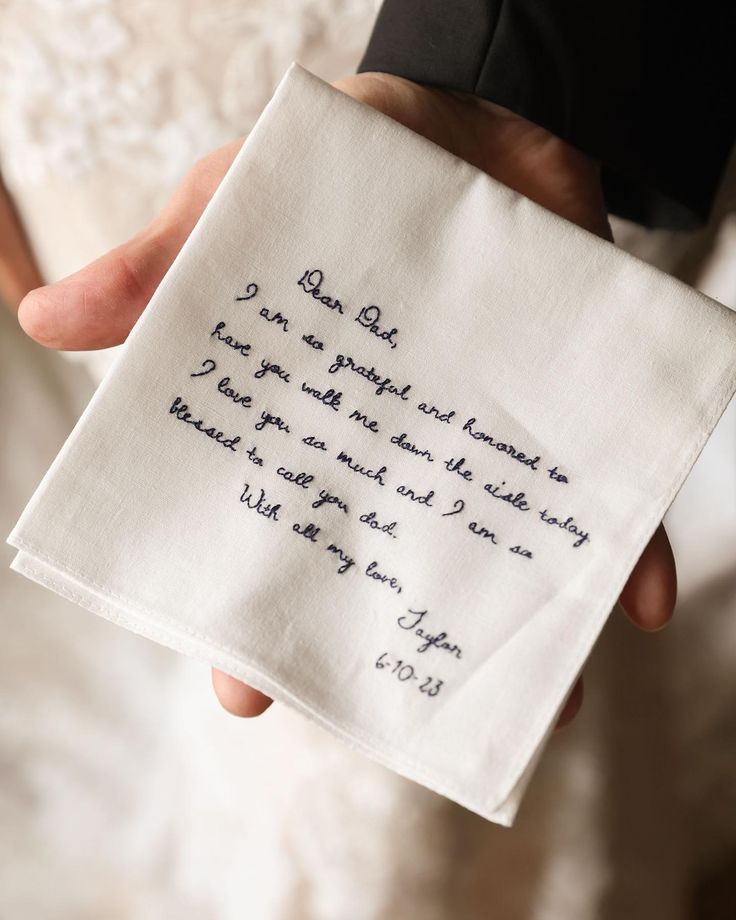 Dear Dad,
I am so grateful and honored to
have you walk me down the aisle today
I love you so much and I am so
blessed to call you dad.
With all my love,
Taylor
6-10-23